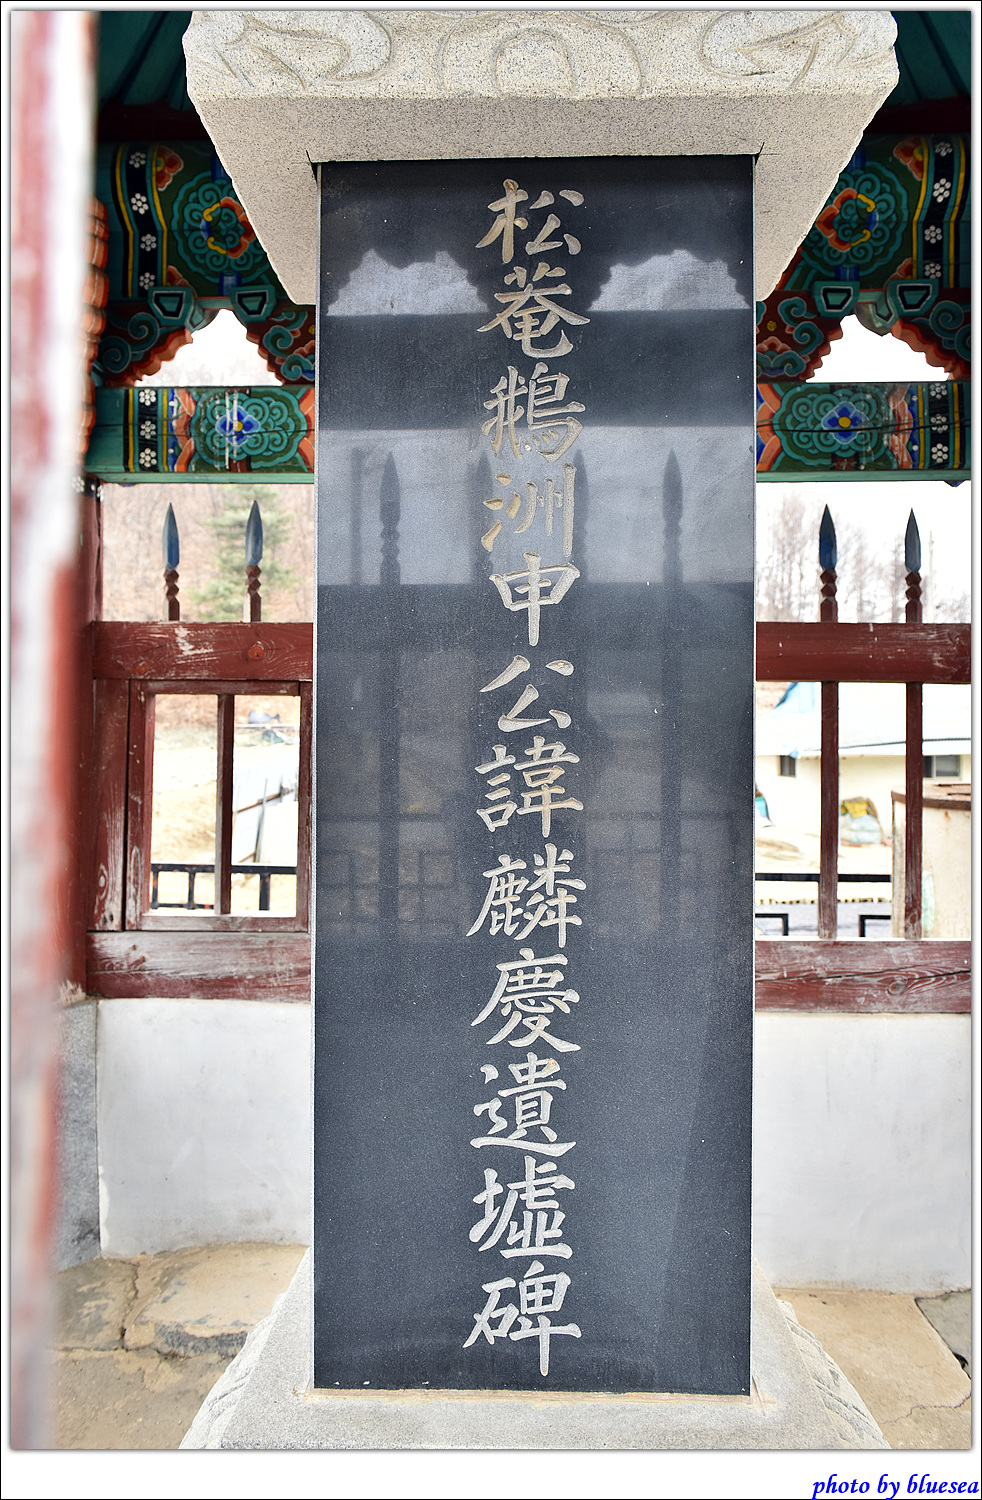 松菴鵝洲申公諱麟慶遺墟碑
photo by bluesea